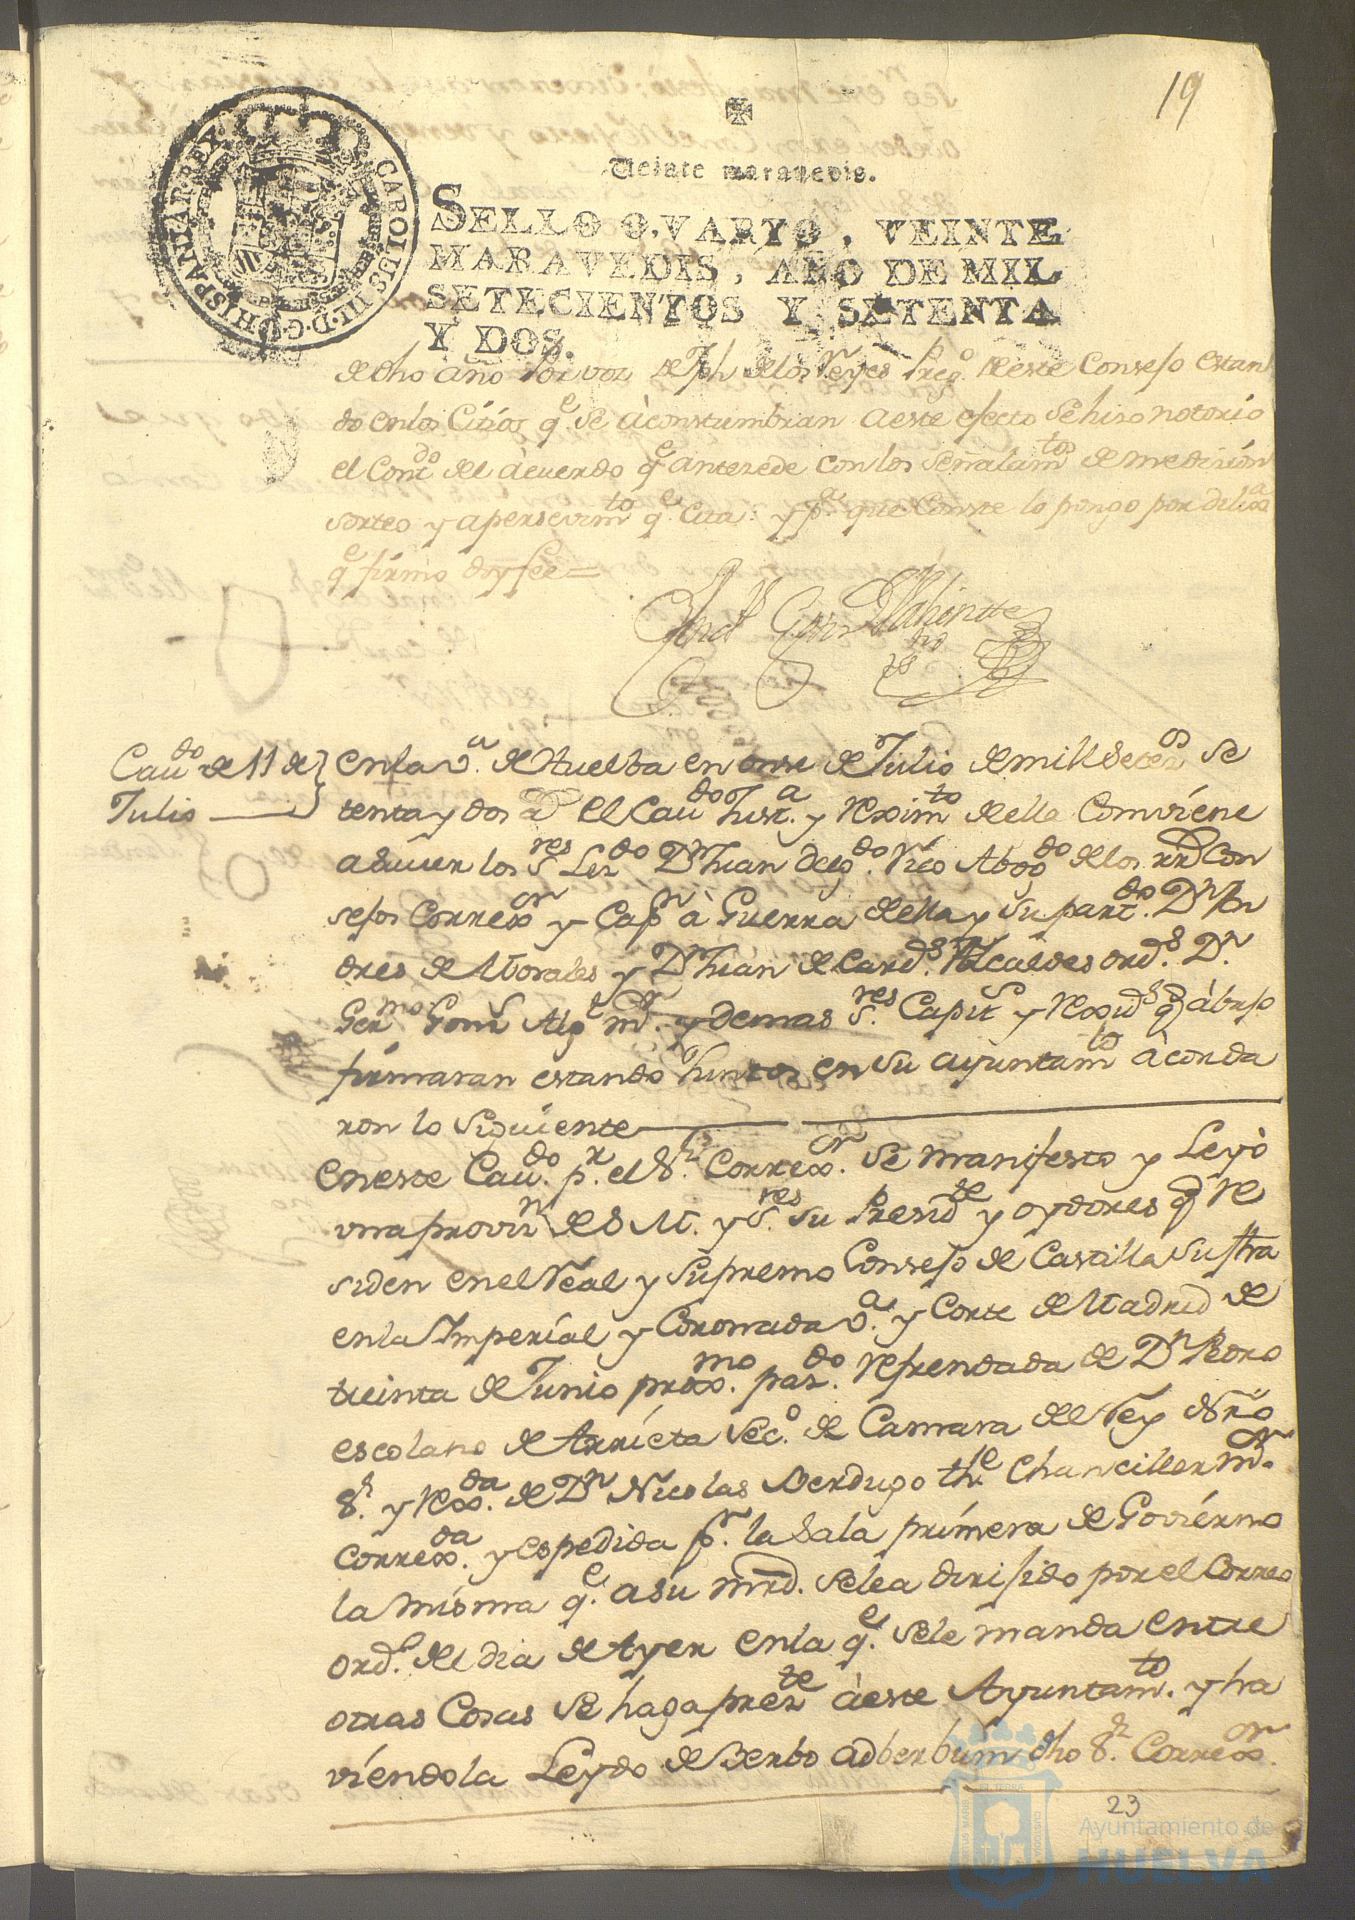 19
Veinte maravedis.
CAROLUS III D G HISPANIAR REX
SELLO QVARTO, VEINTE
MARAVEDIS, AÑO DE MIL
SETECIENTOS Y SETENTA
Y DOS.
de dho año Por voz de Jph de los Reyes Preg.o de este Consejo estan
do en los Citios q.e se àcostumbran a este efecto se hiso notorio
el Cont.do del àcuerdo q.e antesede con los señalam.tos de medision
sorteo y apersevim.to q.e cita: y p.a que Conste lo pongo por dilix.a
q.e firmo doy fee=
Cav.do de 11 de
Julio
en la V.a de Huelba en onse de Julio de mill Setec.os Se
tenta y dos a.s el Cav.do Just.a y Rexim.to de ella Comviene
a saver los S.res Liz.do D.n Juan Delg.do Rico Abog.do de los RR.s Con
sejos Correx.or y Cap.n à Guerra de ella y su part.do D.n An
dres de Morales y D.n Juan de Card.s Alcaldes ord.s D.n
Ger.mo Gonz.s Alg.l m.r y demas S.res Capit.s y Rexid.s q.e àbajo
firmaran estando Juntos en su ayuntam.to àcorda
ron lo siguiente
en este Cav.do p.r el S.r Correx.or se manifesto y Leyò
una provi.n de S M. y S.res su Presid.te y oydores q.e Re
siden en el Real y Supremo Consejo de Castilla su ftra
en la Imperial y Coronada V.a y Corte de Madrid de
treinta de Junio prox.mo paz.do Refrendada de D.n Pedro
escolano de Arrieta Sec.o de Camara del Rey Nro
S.r y Rex.da de D.n Nicolas Berdugo th.e Chanciller m.r
Correx.da y espedida p.r la Sala primera de Govierno
la misma q.e a su mrd. se le a dirijido por el Correo
ord.o del dia de Ayer en la q.e se le manda entre
otras Cosas se haga prez.te à este Ayuntam.to y ha
viendola Leydo de Berbo adberbum dho S.r Correx.or
23
Ayuntamiento de
HUELVA